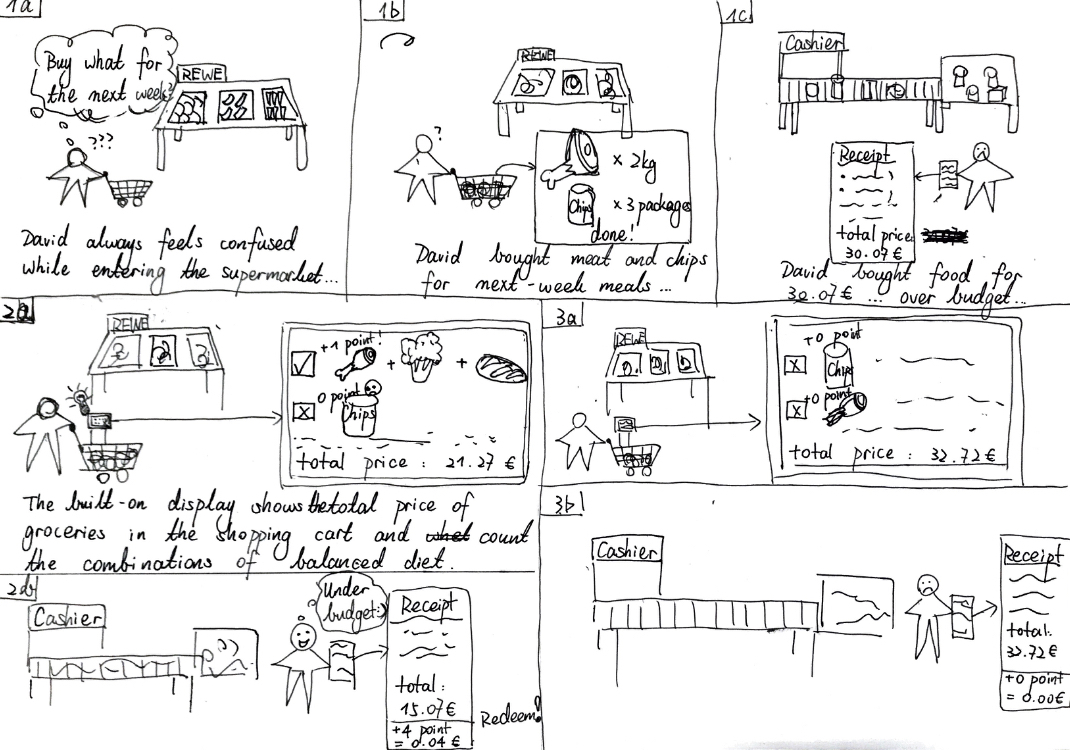 1a
Buy what for
the next week?
REWE
???
David always feels confused
while entering the supermarket...
1b
REWE
?
x 2kg
Chips
x 3 packages
done!
David bought meat and chips
for next-week meals...
1c
Cashier
Receipt
total price:
30.07€
David bought food for
30.07€ ... over budget...
2a
REWE
+1 point!
+
+
0 point
Chips
total price : 21.27 €
The built-on display shows the total price of
groceries in the shopping cart and what count
the combinations of balanced diet.
2b
Cashier
Under
budget:)
Receipt
total:
15.07€
+4 point
= 0.04 €
Redeem!
3a
REWE
+0 point
Chips
+0 point
total price : 32.72€
3b
Cashier
Receipt
total:
32.72€
+0 point
= 0.00€